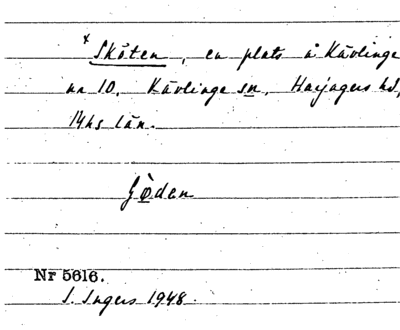 × Skôten, en plats å Kävlinge
nr 10. Kävlinge sn, Harjagers hd,
Mhs län.
Göden
Nr 5616.
I. Ingers 1948.